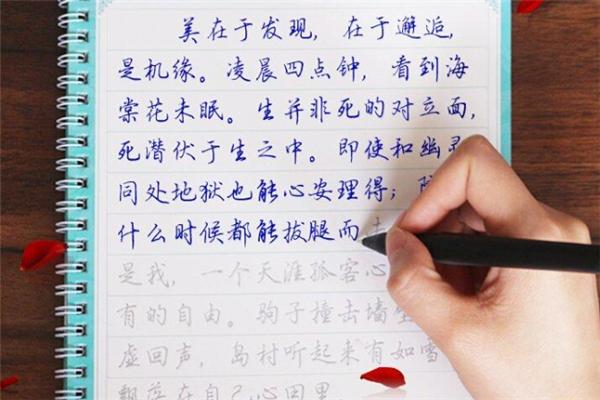 美在于发现，在于邂逅，
是机缘。凌晨四点钟，看到海
棠花未眠。生并非死的对立面，
死潜伏于生之中。即使和幽
同处地狱也能心安理得；
什么时候都能拔腿而
是我，一个天涯孤客心
有的自由。驹子撞击墙壁
虚回声，岛村听起来有如雪
飘落在自己心田里